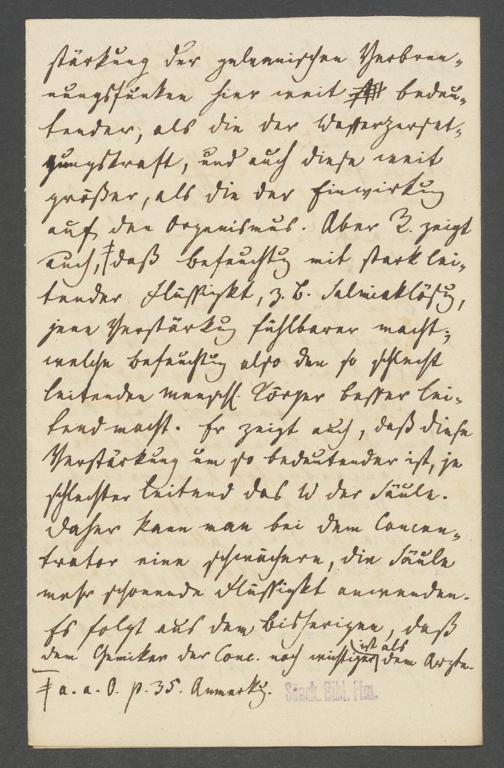 stärkung der galvanischen Verbren-
nungsfunken hier weit bedeu-
tender, als die der Wasserzerset-
zungskraft, und auch diese weit
größer, als die der Einwirkung
auf den Organismus. Aber R. zeigt
auch, ‡ daß Befeuchtung mit stark lei-
tender Flüssigkt, z. B. Salmiaklösg,
jene Verstärkung fühlbarer macht;
welche Befeuchtung also den so schlecht
leitenden menschl. Körper besser lei-
tend macht. Er zeigt auch, daß diese
Verstärkung um so bedeutender ist, je
schlechter leitend das W der Säule.
Daher kann man bei dem Concen-
trator eine schwächere, die Säule
mehr schonende Flüssigkt anwenden.
Es folgt aus dem Bisherigen, daß
dem Chemiker der Conc. noch wichtiger ist als dem Arzte.
‡ a. a. O. p. 35. Anmerkg.
Senck. Bibl. Ffm.